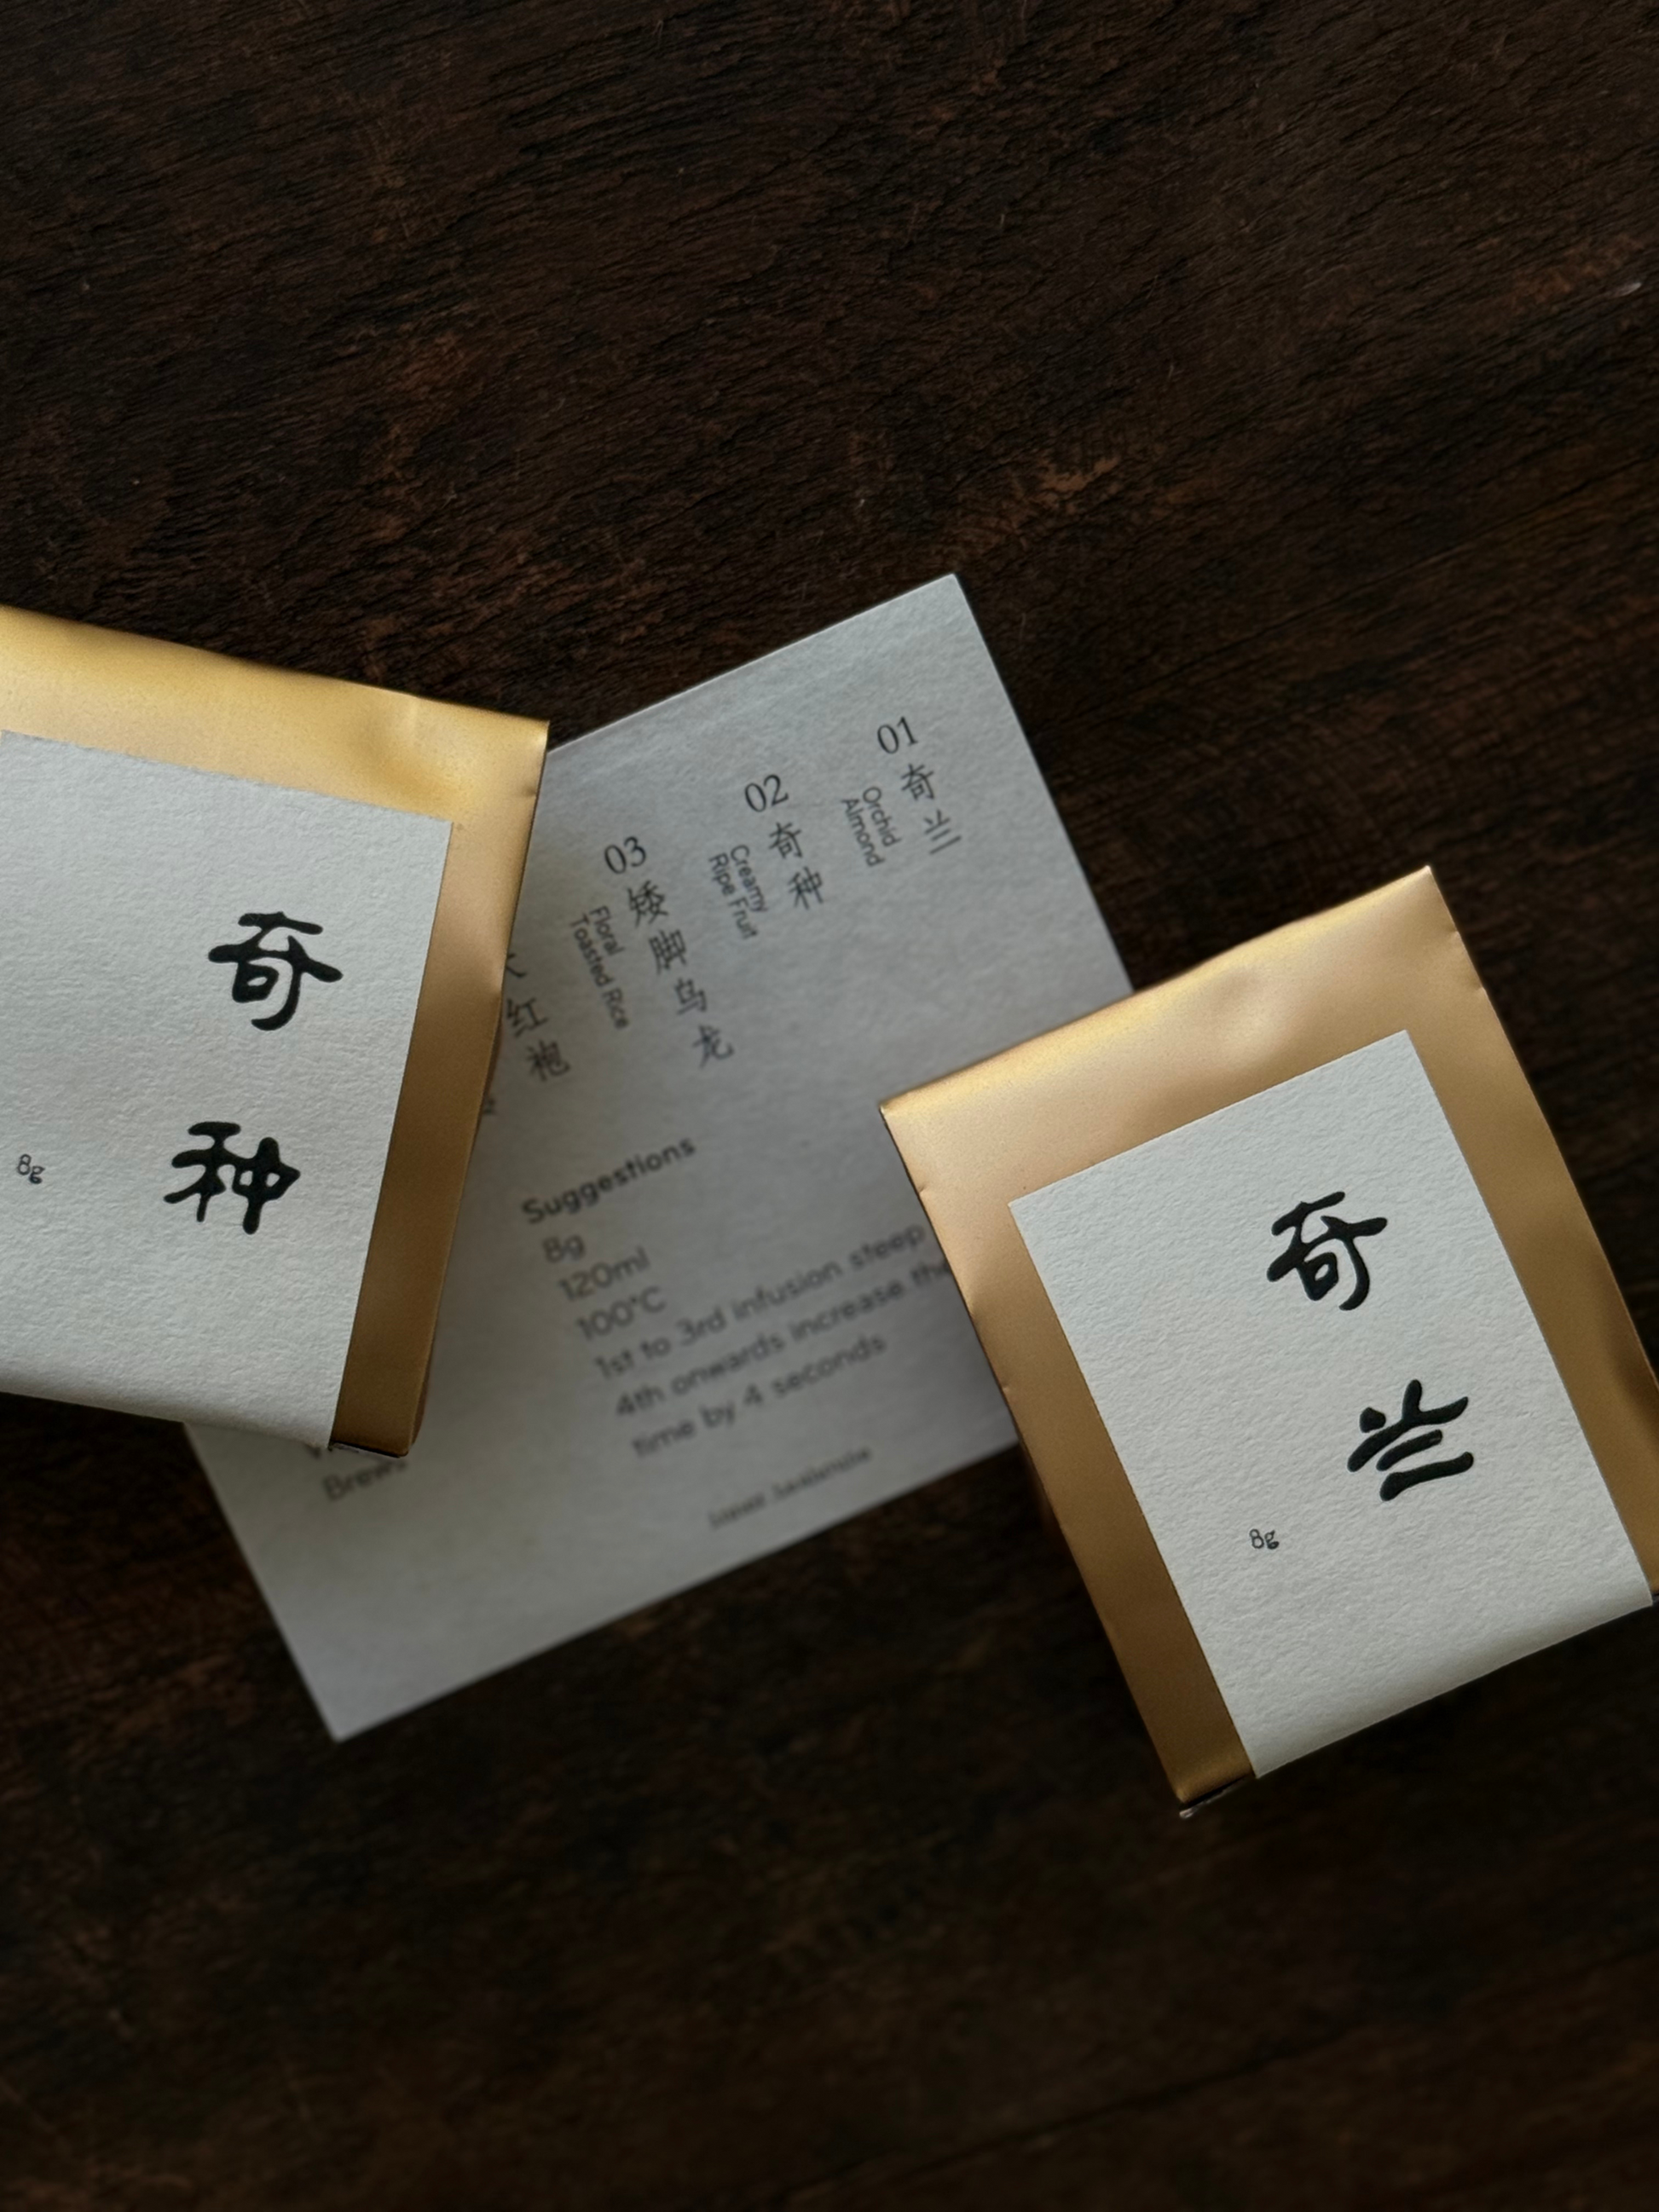 奇种
8g
01
奇兰
Orchid
Almond
02
奇种
Creamy
Ripe Fruit
03
矮脚乌龙
Floral
Toasted Rice
红袍
Suggestions
8g
120ml
100°C
1st to 3rd infusion steep
4th onwards increase the
time by 4 seconds
奇兰
8g